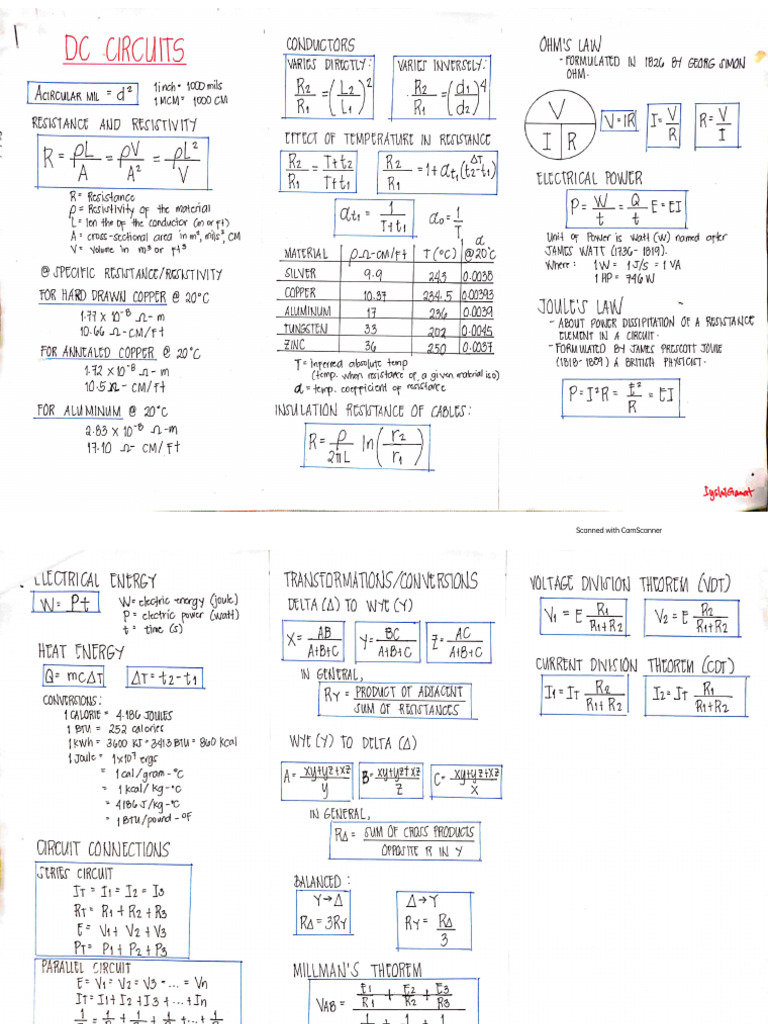 DC CIRCUITS
A CIRCULAR MIL = d²
1 inch = 1000 mils
1 MCM = 1000 CM
RESISTANCE AND RESISTIVITY
R = ρL/A = ρV/A² = ρL²/V
R = Resistance
ρ = Resistivity of the material
L = len the of the conductor (m or ft)
A = cross-sectional area in m², mils², CM
V = volume in m³ or ft³
@ SPECIFIC RESISTANCE/RESISTIVITY
FOR HARD DRAWN COPPER @ 20°C
1.77 x 10⁻⁸ Ω-m
10.66 Ω-CM/ft
FOR ANNEALED COPPER @ 20°C
1.72 x 10⁻⁸ Ω-m
10.5 Ω-CM/ft
FOR ALUMINUM @ 20°C
2.83 x 10⁻⁸ Ω-m
17.10 Ω-CM/ft
CONDUCTORS
VARIES DIRECTLY:
R2/R1 = (L2/L1)²
VARIES INVERSELY:
R2/R1 = (d1/d2)⁴
EFFECT OF TEMPERATURE IN RESISTANCE
R2/R1 = T+t2/T+t1
R2/R1 = 1+αt1(t2-t1) ΔT
αt1 = 1/T+t1
α0 = 1/T
MATERIAL ρΩ-CM/ft T(°C) α@20°C
SILVER 9.9 243 0.0038
COPPER 10.37 234.5 0.00393
ALUMINUM 17 236 0.0039
TUNGSTEN 33 202 0.0045
ZINC 36 250 0.0037
T = Inferred absolute temp
(temp. when resistance of a given material is 0)
α = temp. coefficient of resistance
INSULATION RESISTANCE OF CABLES:
R = ρ/2πL ln(r2/r1)
OHM'S LAW
- FORMULATED IN 1826 BY GEORG SIMON
OHM.
V
I R
V=IR
I=V/R
R=V/I
ELECTRICAL POWER
P = W/t = Q/t E = EI
Unit of Power is Watt (W) named after
JAMES WATT (1736-1819).
Where: 1W = 1J/s = 1VA
1HP = 746W
JOULE'S LAW
- ABOUT POWER DISSIPITATION OF A RESISTANCE
ELEMENT IN A CIRCUIT.
- FORMULATED BY JAMES PRESCOTT JOULE
(1818-1889) A BRITISH PHYSICIST.
P = I²R = E²/R = EI
Scanned with CamScanner
ELECTRICAL ENERGY
W = Pt
W = electric energy (joule)
P = electric power (watt)
t = time (s)
HEAT ENERGY
Q = mcΔT
ΔT = t2-t1
CONVERSIONS:
1 CALORIE = 4.186 JOULES
1 BTU = 252 calories
1 kWh = 3600 KJ = 3413 BTU = 860 kcal
1 Joule = 1x10⁷ ergs
= 1 cal/gram-°C
= 1 kcal/kg-°C
= 4186 J/kg-°C
= 1 BTU/pound-°F
CIRCUIT CONNECTIONS
SERIES CIRCUIT
IT = I1 = I2 = I3
RT = R1 + R2 + R3
E = V1 + V2 + V3
PT = P1 + P2 + P3
PARALLEL CIRCUIT
E = V1 = V2 = V3 - ... = Vn
IT = I1 + I2 + I3 + ... + In
1/ = 1/ + 1/ + 1/ + ... + 1/
TRANSFORMATIONS/CONVERSIONS
DELTA (Δ) TO WYE (Y)
X = AB/A+B+C
Y = BC/A+B+C
Z = AC/A+B+C
IN GENERAL,
RY = PRODUCT OF ADJACENT/SUM OF RESISTANCES
WYE (Y) TO DELTA (Δ)
A = xy+yz+xz/y
B = xy+yz+xz/z
C = xy+yz+xz/x
IN GENERAL,
RΔ = SUM OF CROSS PRODUCTS/OPPOSITE R IN Y
BALANCED:
Y→Δ
RΔ = 3RY
Δ→Y
RY = RΔ/3
MILLMAN'S THEOREM
VAB = E1/R1 + E2/R2 + E3/R3
1/ + 1/ + 1/
VOLTAGE DIVISION THEOREM (VDT)
V1 = E R1/R1+R2
V2 = E R2/R1+R2
CURRENT DIVISION THEOREM (CDT)
I1 = IT R2/R1+R2
I2 = IT R1/R1+R2